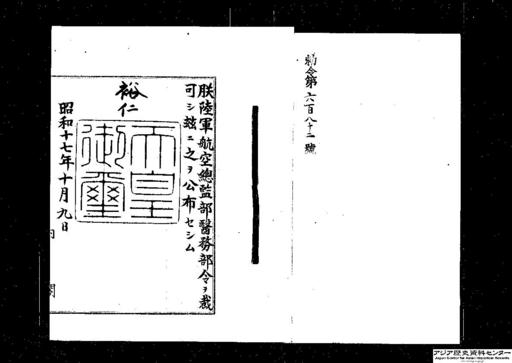 勅令第六百八十二號
朕陸軍航空總監部醫務部令ヲ裁
可シ玆ニ之ヲ公布セシム
裕仁
天皇
御璽
昭和十七年十月九日
内閣
アジア歴史資料センター
Japan Center for Asian Historical Records